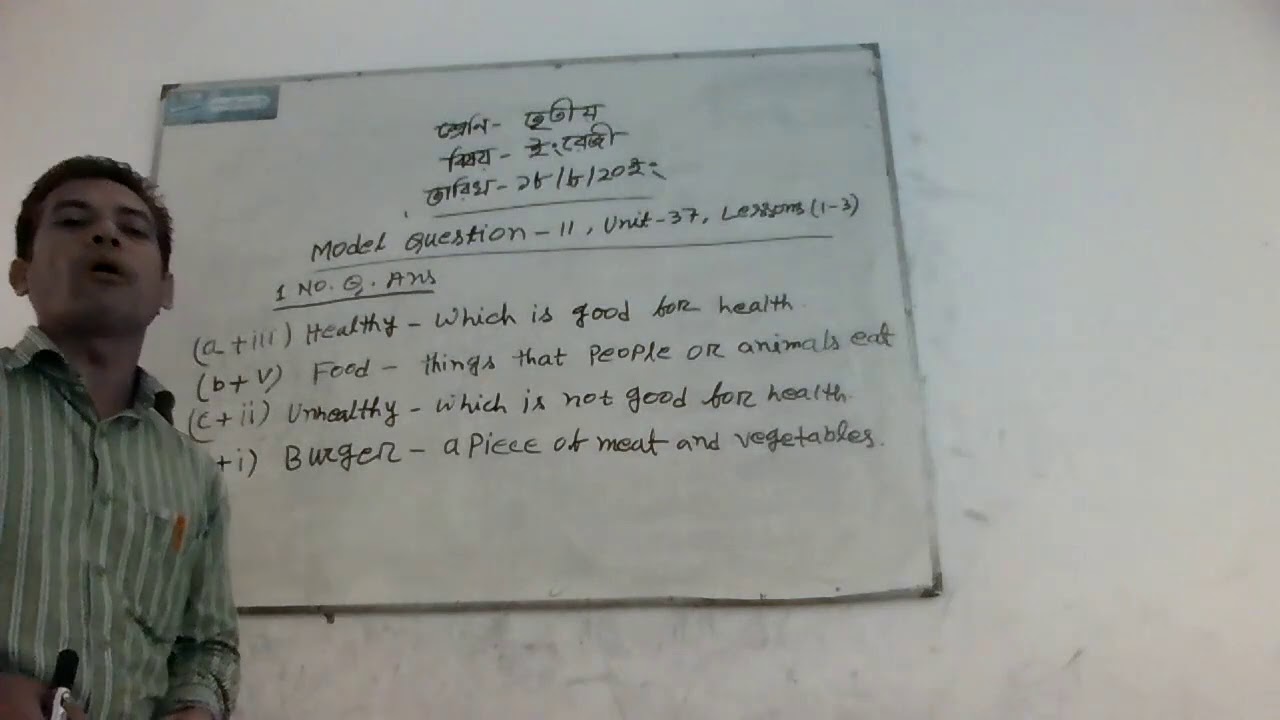 শ্রেণি- তৃতীয়
বিষয় - ইংরেজী
তারিখ- ২৮/৮/20ইং
Model Question - 11, Unit-37, Lessons (1-3)
1 No. Q. Ans
(a+iii) Healthy - which is good for health.
(b+v) Food - things that people or animals eat
(c+ii) Unhealthy - which is not good for health.
+i) Burger - a piece of meat and vegetables.